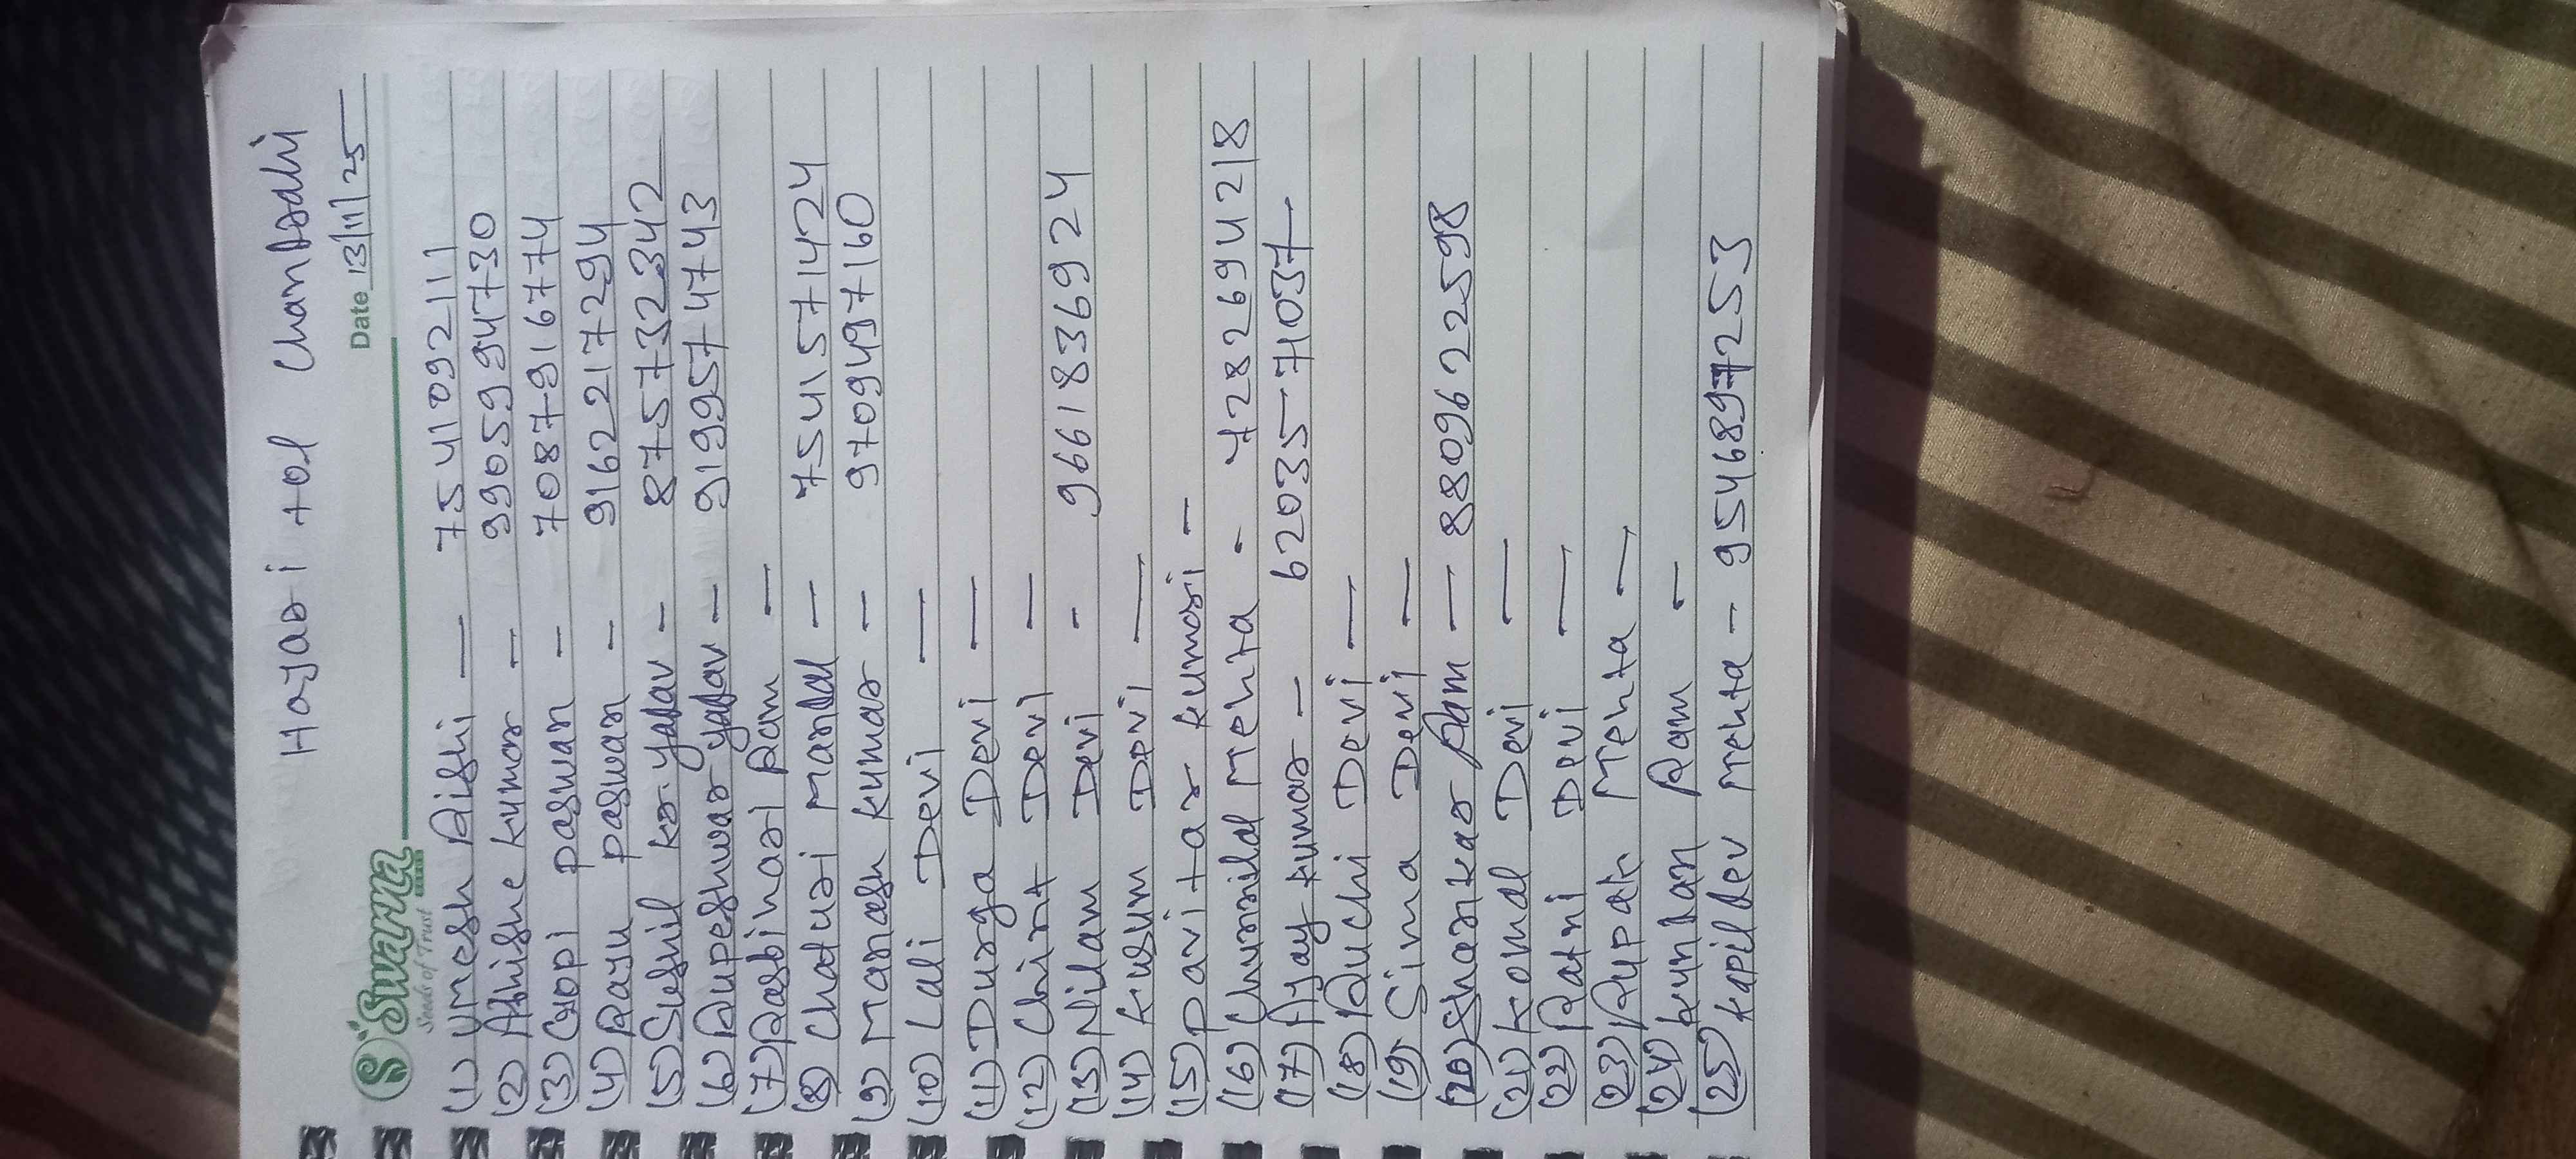 Hajari tol Chandsahi
Date 13/11/25
Swarna
Seeds of Trust
(1) Umesh Rishi — 7541092111
(2) Abhishe kumar — 99059947730
(3) Gopi paswan — 7087916774
(4) Raju paswan — 9162217294
(5) Sushil kr. yadav — 8757732342
(6) Rupeshwar yadav — 9199574743
(7) Rasbihari Ram —
(8) Chaturi Mandal — 7541571424
(9) Manash kumar — 9709497160
(10) Lali Devi —
(11) Durga Devi —
(12) Chint Devi —
(13) Nilam Devi - 9661836924
(14) kusum Devi —
(15) pavitar kumari —
(16) Chunnilal Mehta - 7282694218
(17) Ajay kumar — 6203571037
(18) Ruchi Devi —
(19) Sima Devi —
(20) Shankar Ram — 8809622598
(21) komal Devi —
(22) Ratni Devi —
(23) Rupak Mehta —
(24) kundan Ram —
(25) kapildev Mehta — 9546897253